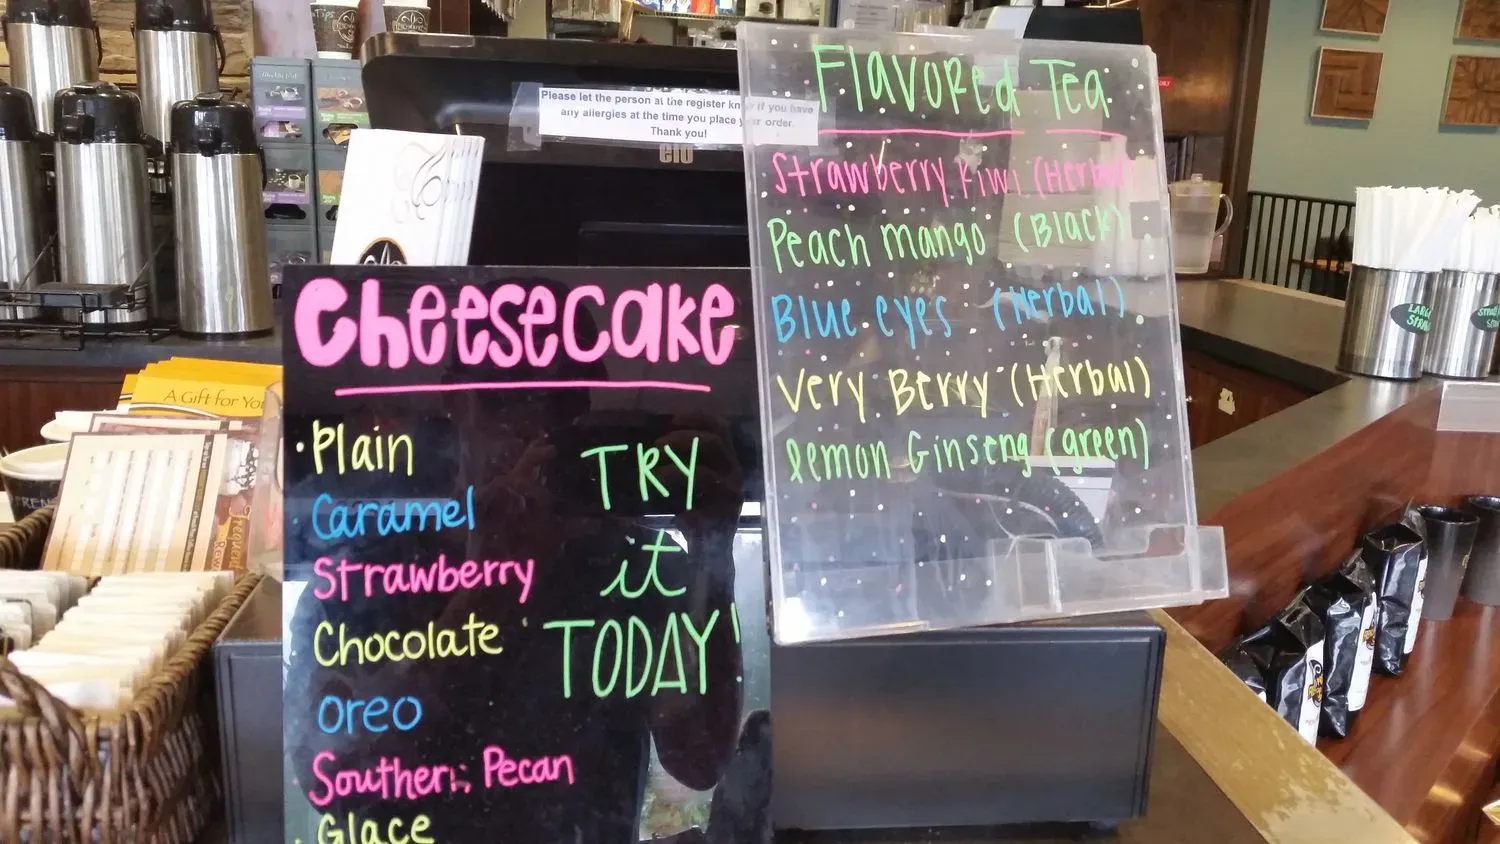 Please let the person at the register know if you have
any allergies at the time you place your order.
Thank you!
elo
Flavored Tea
Strawberry Kiwi (Herbal)
Peach mango (Black)
Blue eyes (Herbal)
Very Berry (Herbal)
lemon Ginseng (green)
Cheesecake
· Plain
Caramel
Strawberry
Chocolate
oreo
Southern Pecan
· Glace
TRY
it
TODAY!
A Gift for You
Tips
LARGE
STRAW